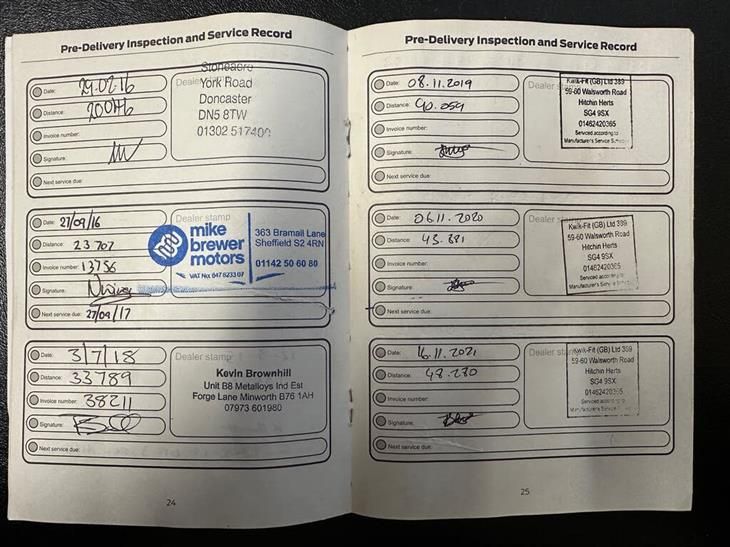 Pre-Delivery Inspection and Service Record
Date: 29.02.16
Distance:
Invoice number:
Signature:
Next service due:
Stoneacre
Dealer
York Road
Doncaster
DN5 8TW
01302 517400
Date: 27/09/16
Distance: 23707
Invoice number: 13756
Signature:
Next service due: 27/09/17
Dealer stamp
mike
brewer
motors
VAT No:
363 Bramall Lane
Sheffield S2 4RN
01142 50 60 80
Date: 3/7/18
Distance: 33789
Invoice number: 38211
Signature:
Next service due:
Dealer stamp
Kevin Brownhill
Unit B8 Metalloys Ind Est
Forge Lane Minworth B76 1AH
07973 601980
24
Pre-Delivery Inspection and Service Record
Date: 08.11.2019
Distance: 40.059
Invoice number:
Signature:
Next service due:
Dealer
Kwik-Fit (GB) Ltd 389
59-60 Walsworth Road
Hitchin Herts
SG4 9SX
01462420365
Serviced according to
Manufacturer's Service Schedule
Date: 06.11.2020
Distance: 43.881
Invoice number:
Signature:
Next service due:
Dealer
Kwik-Fit (GB) Ltd 389
59-60 Walsworth Road
Hitchin Herts
SG4 9SX
01462420365
Serviced according to
Manufacturer's Service
Date: 16.11.2021
Distance: 48.280
Invoice number:
Signature:
Next service due:
Dealer
Kwik-Fit (GB) Ltd 389
59-60 Walsworth Road
Hitchin Herts
SG4 9SX
01462420365
Serviced according to
Manufacturer's Service
25